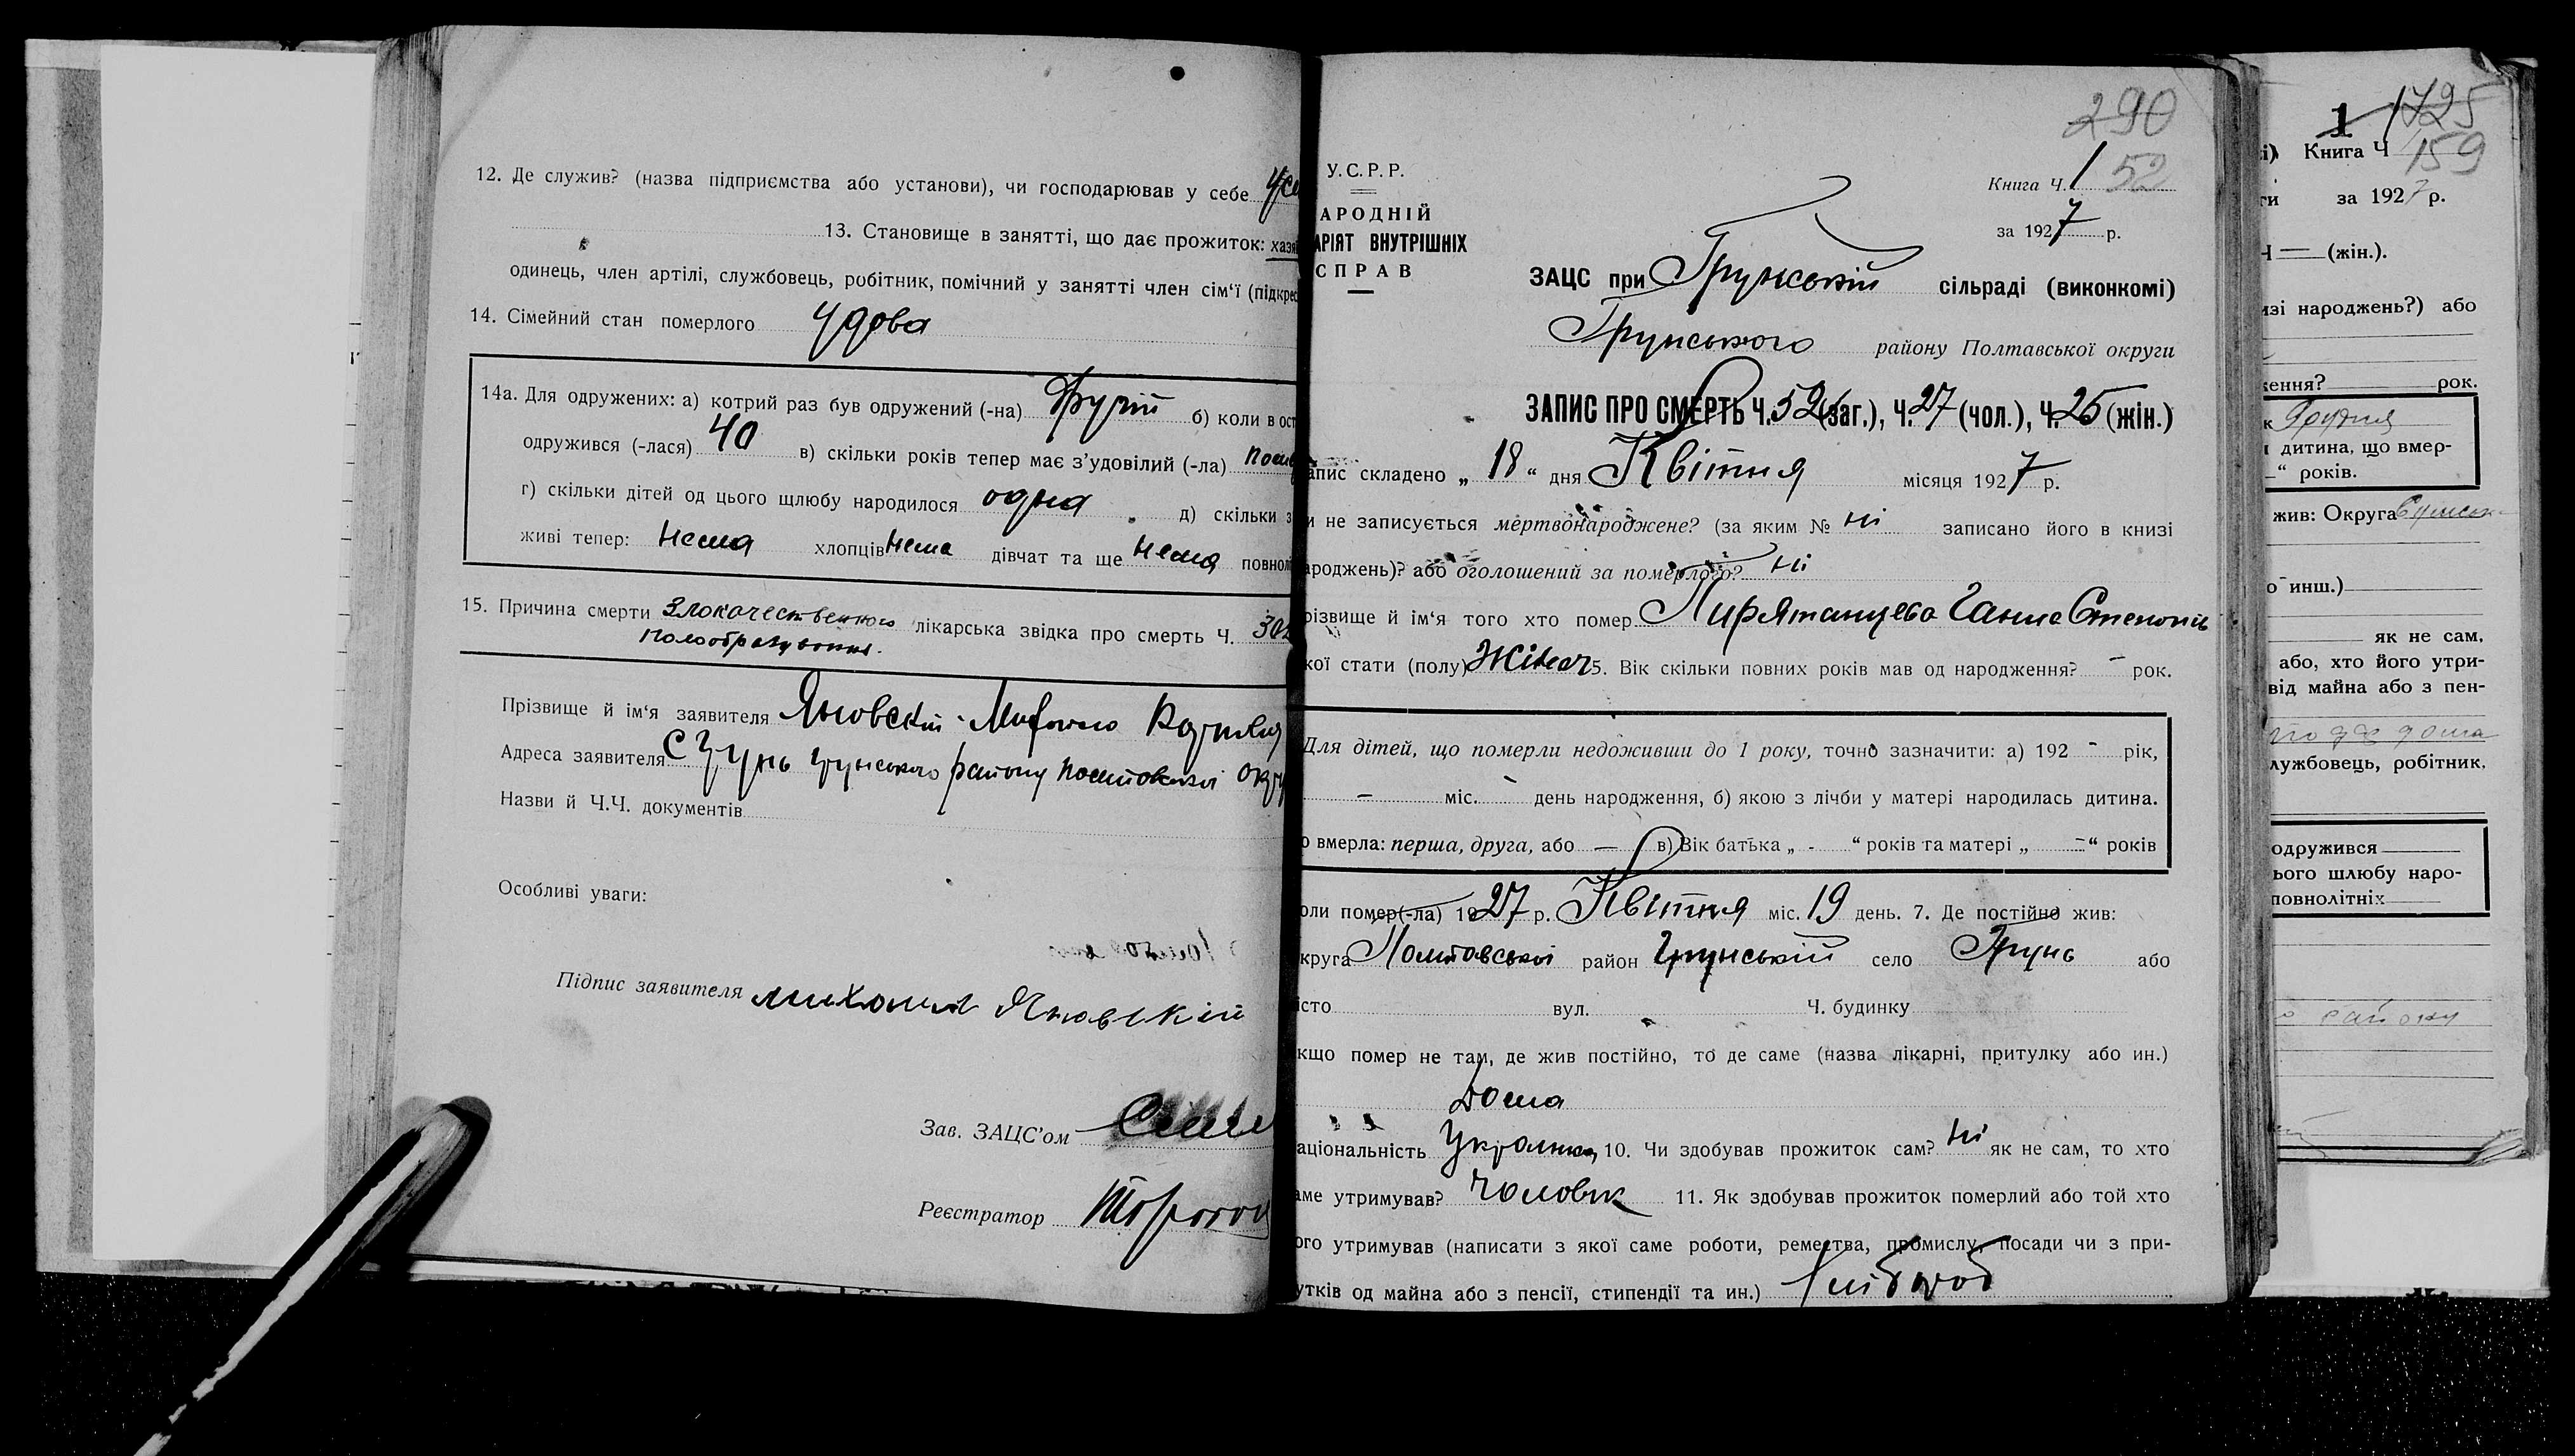 12. Де служив? (назва підприємства або установи), чи господарював у себе
13. Становище в занятті, що дає прожиток: хазя
одинець, член артілі, службовець, робітник, помічний у занятті член сім‘ї (підкрес
14. Сімейний стан померлого Удова
14а. Для одружених: а) котрий раз був одружений (-на) другий б) коли в ост
одружився (-лася) 40 в) скільки років тепер має з’удовілий (-ла)
г) скільки дітей од цього шлюбу народилося одна д) скільки з
живі тепер: нема хлопців нема дівчат та ще нема повнол
15. Причина смерти Злокачественного лікарська звідка про смерть Ч.
Прізвище й ім‘я заявителя Яновский
Адреса заявителя с Грунь Грунського району Полтавської окру
Назви й Ч.Ч. документів
Особливі уваги:
Підпис заявителя Михоил Яновскій
Зав. ЗАЦС’ом
Реєстратор
290
У.С.Р.Р.
Книга Ч. 1 52
АРОДНІЙ
АРІЯТ ВНУТРІШНІХ
СПРАВ
за 1927 р.
ЗАЦС при Грунській сільраді (виконкомі)
Грунського району Полтавської округи
ЗАПИС ПРО СМЕРТЬ Ч. 52 (заг.), Ч. 27 (чол.), Ч. 25 (жін.)
апис складено „ 18 “ дня Квітня місяця 1927 р.
и не записується мертвонароджене? (за яким № ні записано його в книзі
ароджень)? або оголошений за померлого? ні
різвище й ім‘я того хто помер Ганна
кої стати (полу) Жіноч 5. Вік скільки повних років мав од народження? – рок.
Для дітей, що померли недоживши до 1 року, точно зазначити: а) 192 - рік,
– міс. - день народження, б) якою з лічби у матері народилась дитина.
о вмерла: перша, друга, або — в) Вік батька „ - “ років та матері „ - “ років
оли помер(-ла) 1927 р. Квітня міс. 19 день. 7. Де постійно жив:
круга Полтавської район Грунській село Грунь або
істо вул. Ч. будинку
кщо помер не там, де жив постійно, то де саме (назва лікарні, притулку або ин.)
Дома
аціональність Українка 10. Чи здобував прожиток сам? ні як не сам, то хто
аме утримував? Чоловік 11. Як здобував прожиток померлий або той хто
ого утримував (написати з якої саме роботи, ремества, промислу, посади чи з при-
утків од майна або з пенсії, стипендії та ин.) Хлібороб
1 1725
і) Книга Ч 159
ги за 1927 р.
Ч — (жін.).
изі народжень?) або
ження? рок.
к Грудня
и дитина, що вмер-
“ років.
жив: Округа Сумськ
о инш.)
як не сам,
або, хто його утри-
від майна або з пен-
лужбовець, робітник,
одружився
ього шлюбу наро-
повнолітніх
району